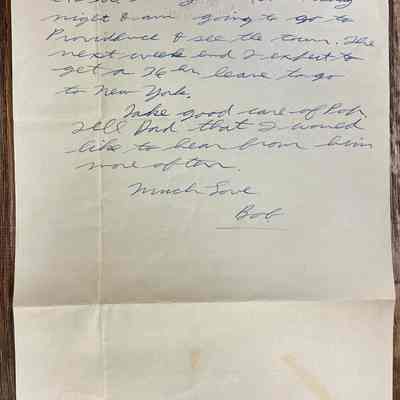 night & am going to go to
Providence & see the town. The
next week end I expect to
get a 76 hr leave to go
to New York.
Take good care of Pop.
Tell Dad that I would
like to hear from him
more often.
Much Love
Bob